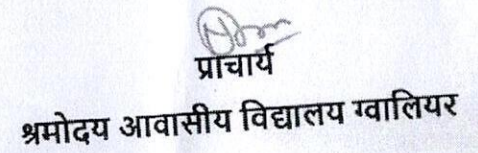 प्राचार्य
श्रमोदय आवासीय विद्यालय ग्वालियर